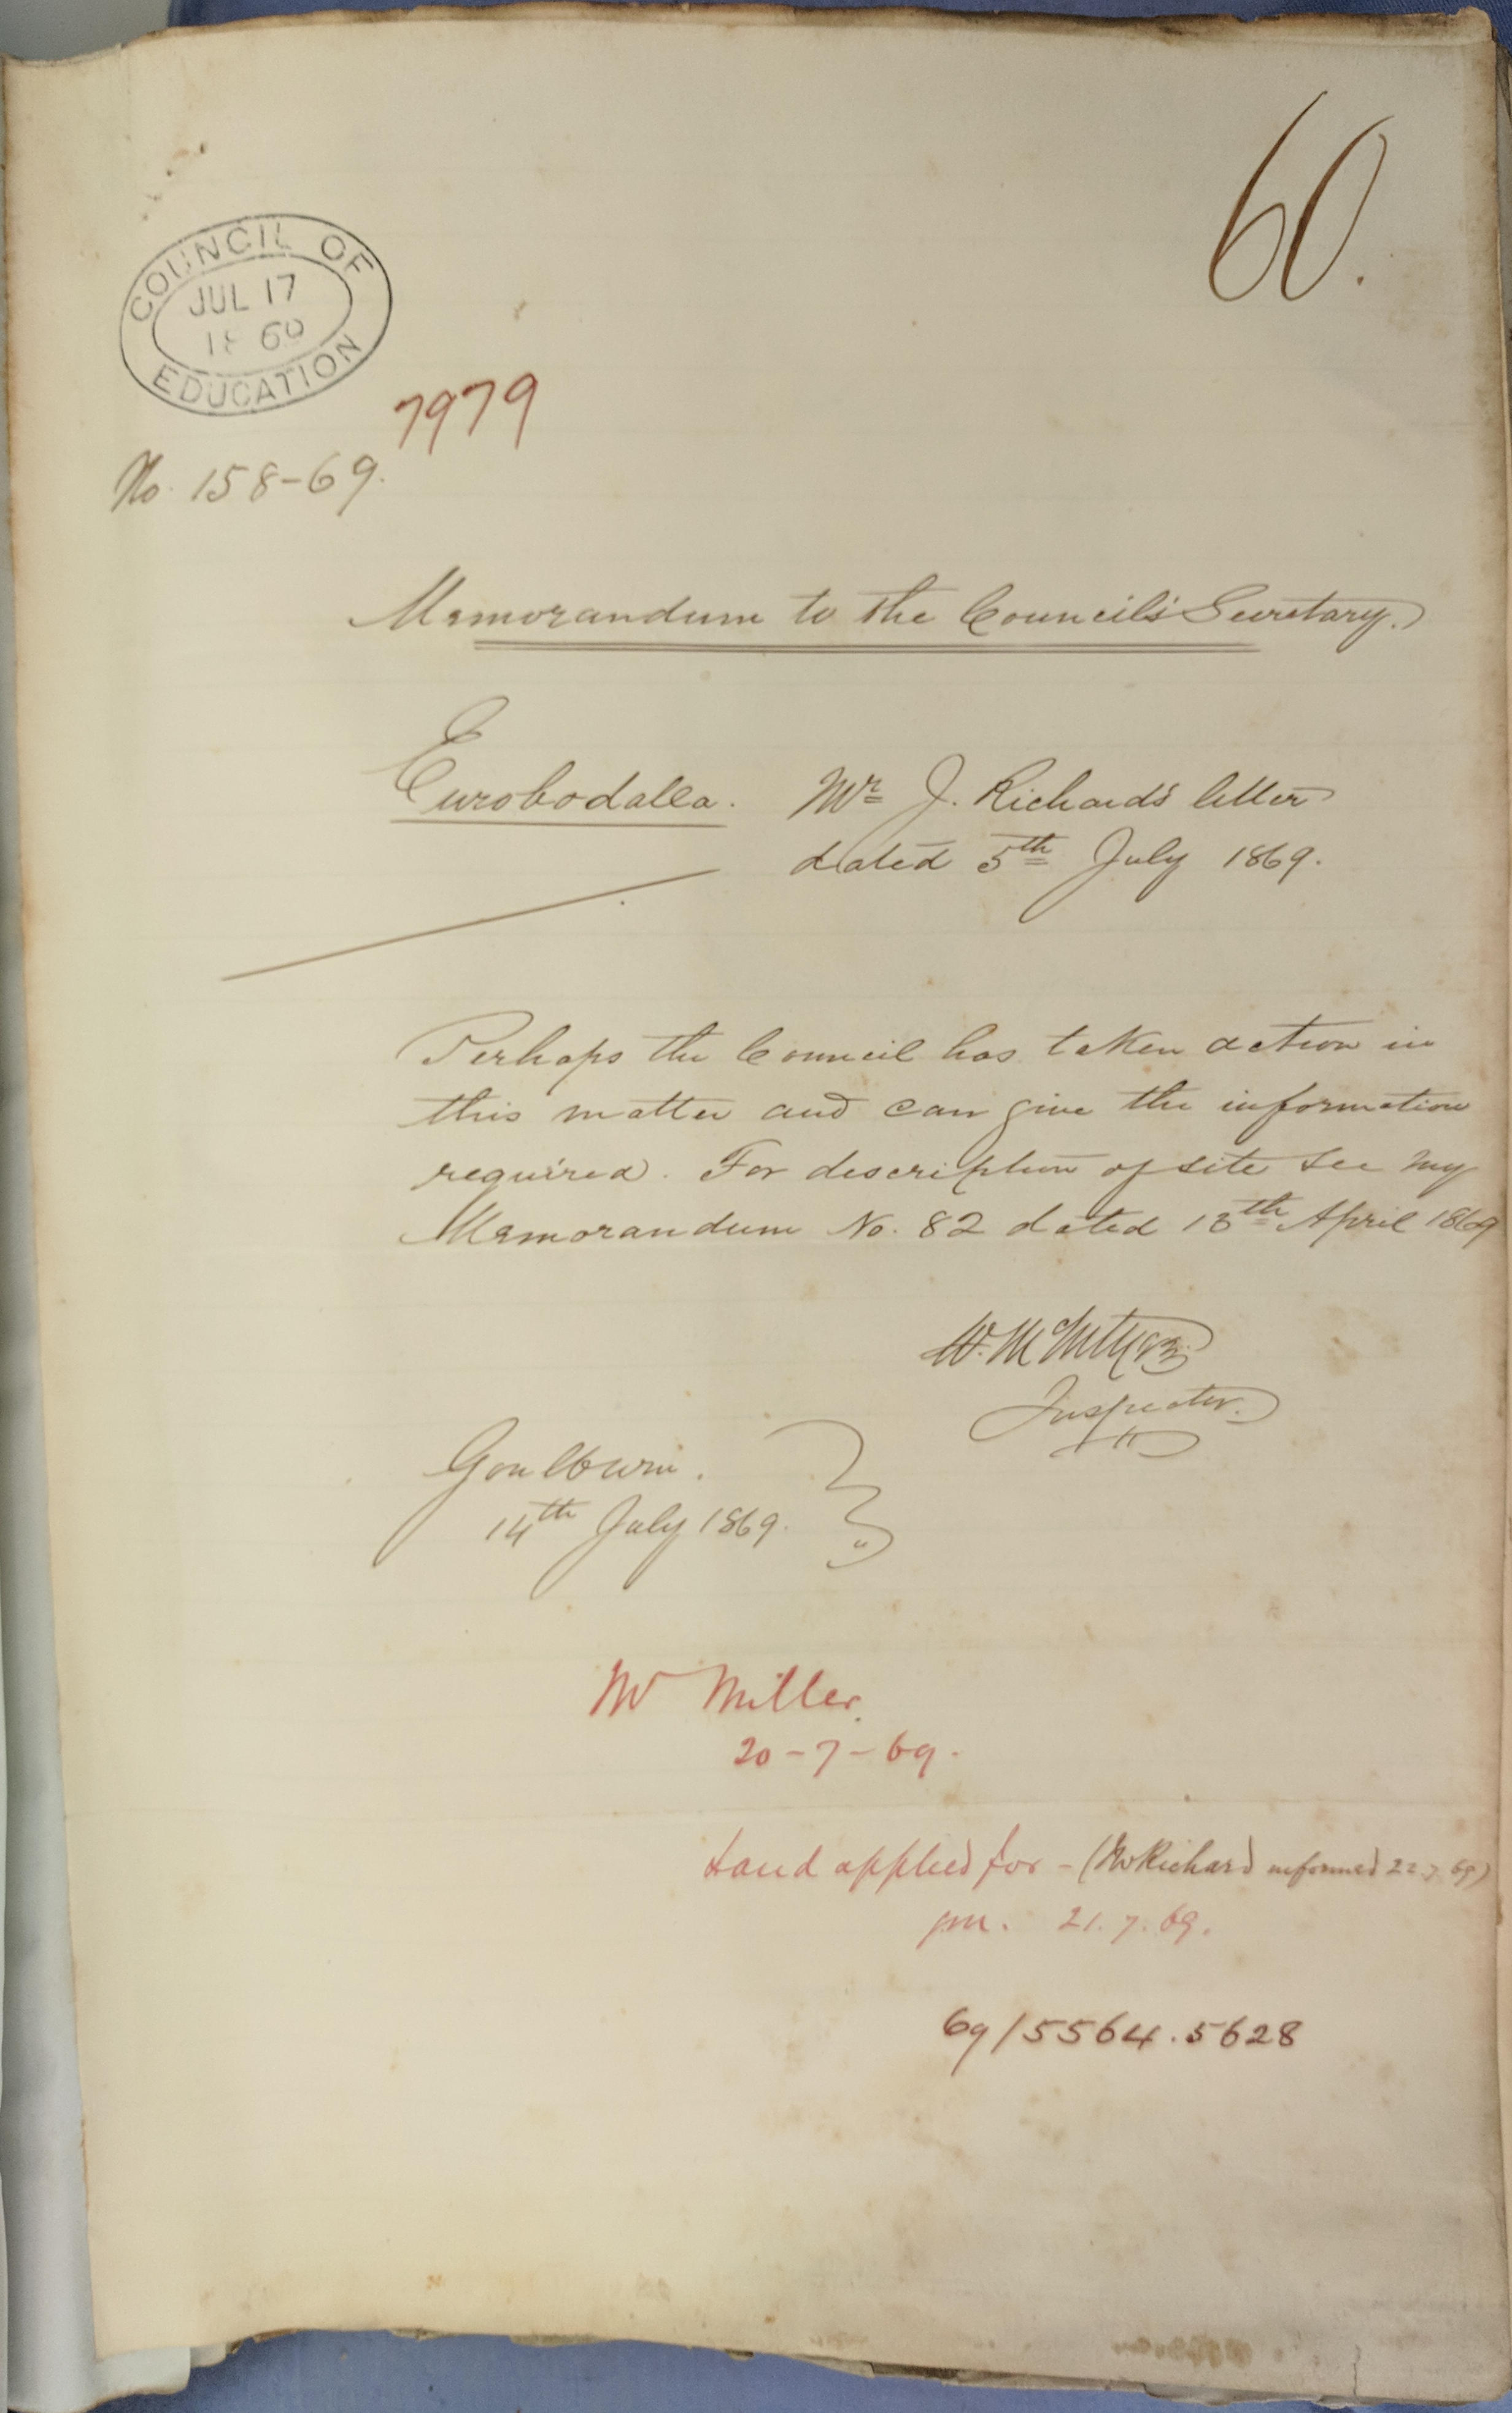 60.
COUNCIL OF
JUL 17
1869
EDUCATION
7979
No. 158-69.
Memorandum to the Council's Secretary.
Eurobodalla. Mr J. Richards' letter
dated 5th July 1869.
Perhaps the Council has taken action in
this matter and can give the information
required. For description of site see my
Memorandum No. 82 dated 13th April 1869
W. McIntyre
Inspector.
Goulburn.
14th July 1869.
Mr Miller.
20-7-69.
Land applied for - (Mr Richard informed 22.7.69)
21.7.69.
69/5564.5628